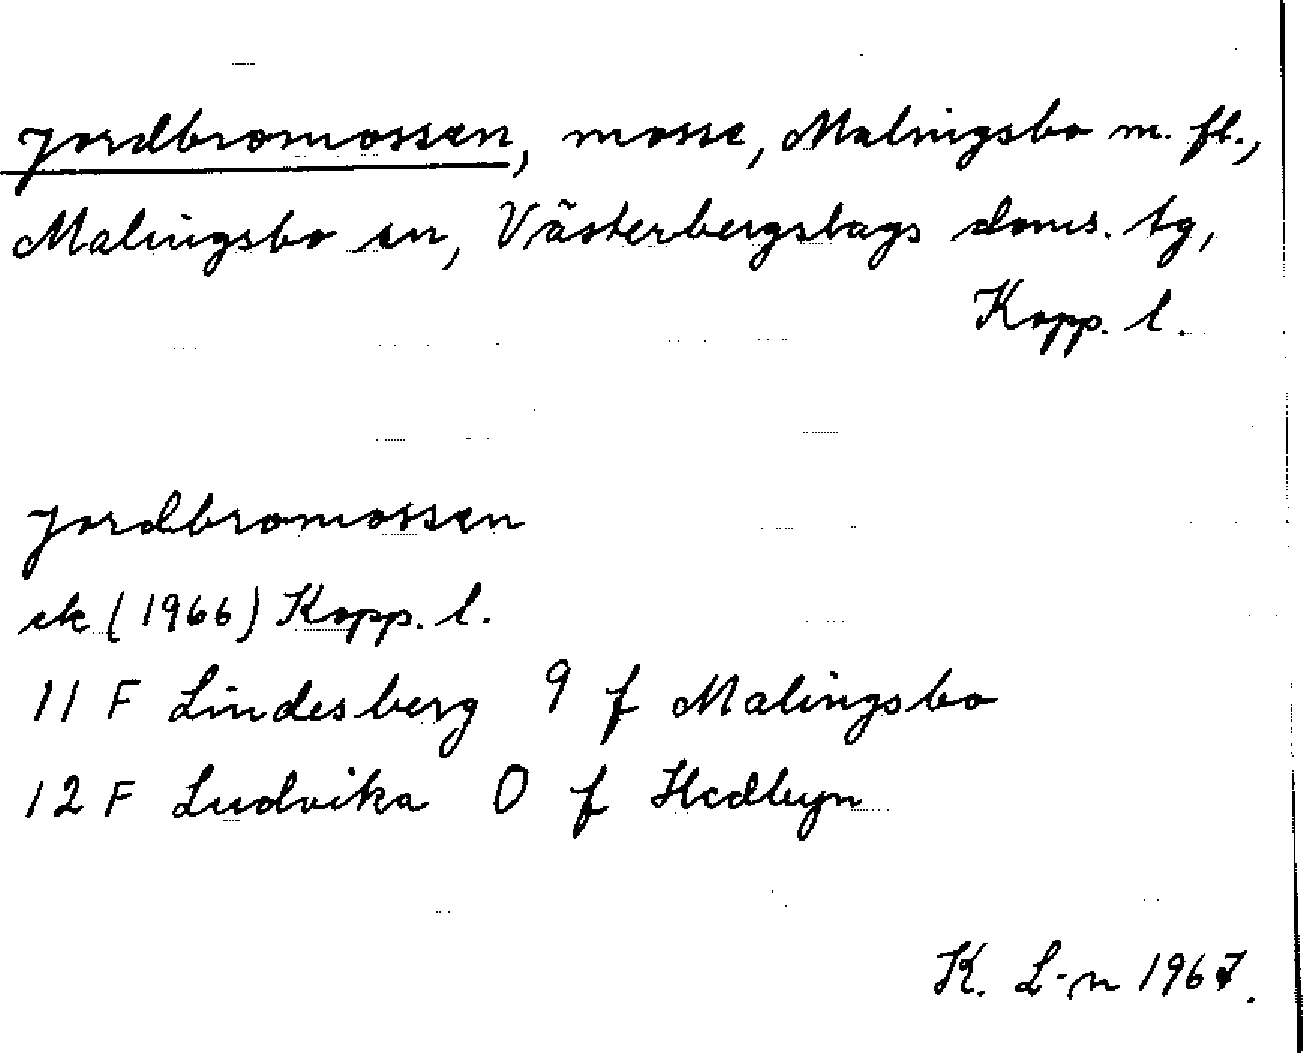 Jordbromossen, mosse, Malingsbo m. fl.,
Malingsbo sn, Västerbergslags doms. tg,
Kopp. l.
Jordbromossen
ek (1966) Kopp. l.
11 F Lindesberg 9 f Malingsbo
12 F Ludvika 0 f Hedbyn
K. L-n 1967.